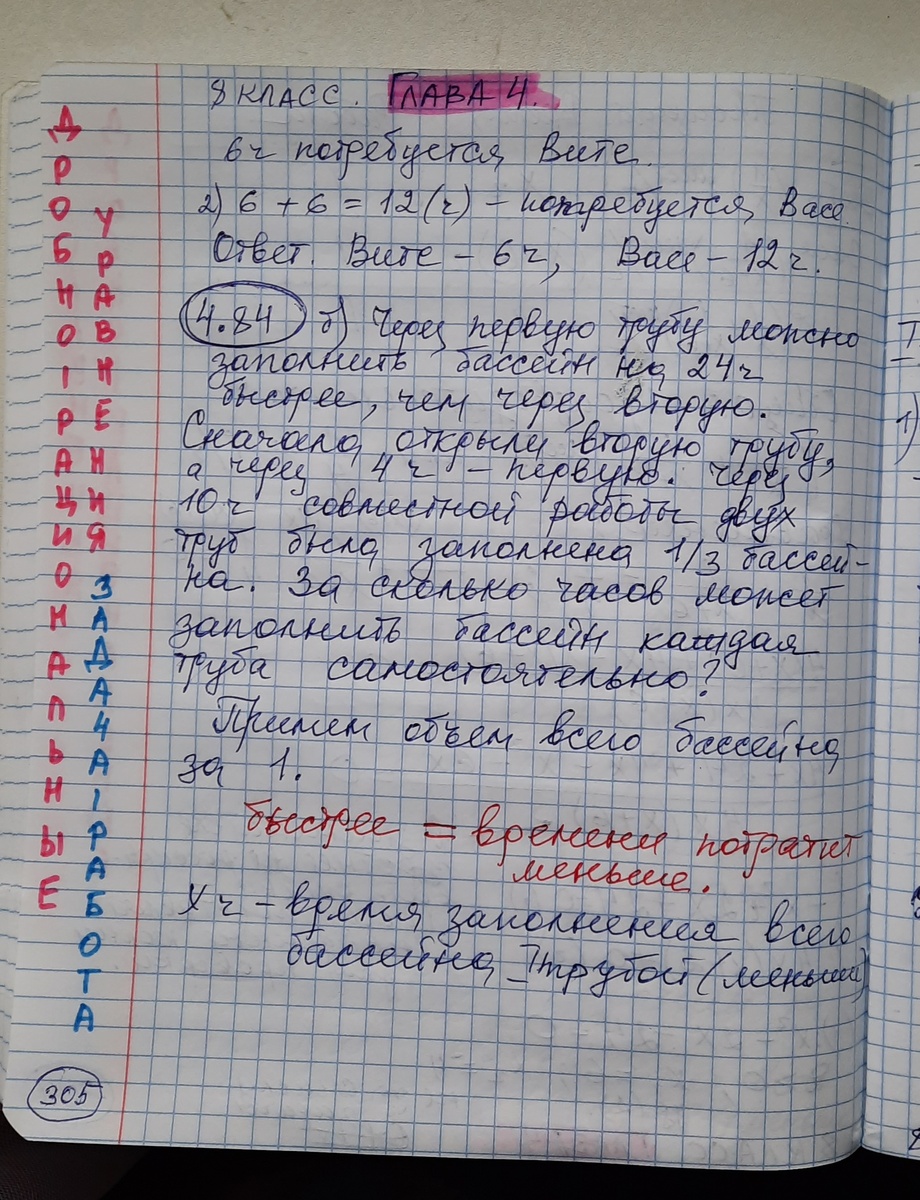 8 КЛАСС. ГЛАВА 4.
6 ч потребуется Вите.
2) 6 + 6 = 12 (ч) – потребуется Васе.
Ответ. Вите – 6 ч, Васе – 12 ч.
4.84 б) Через первую трубу можно
заполнить бассейн на 24 ч
быстрее, чем через вторую.
Сначала открыли вторую трубу,
а через 4 ч – первую. Через
10 ч совместной работы двух
труб была заполнена 1/3 бассей-
на. За сколько часов может
заполнить бассейн каждая
труба самостоятельно?
Примем объем всего бассейна
за 1.
быстрее = времени потратит
меньше.
X ч – время заполнения всего
бассейна I трубой (меньше)
ДРОБНО РАЦИОНАЛЬНЫЕ
УРАВНЕНИЯ ЗАДАЧА РАБОТА
305
1)